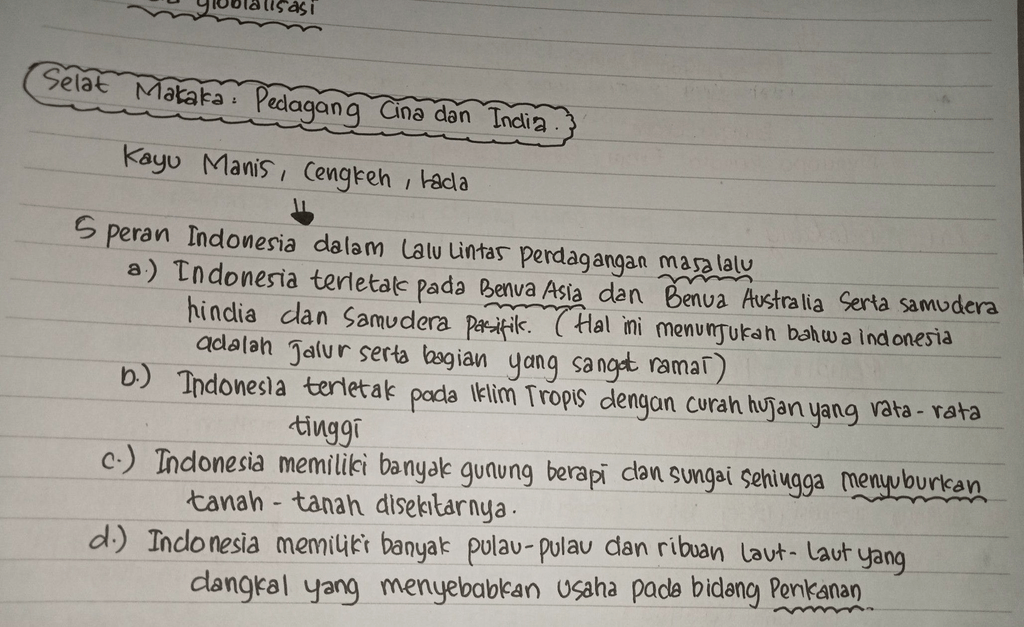 globalisasi
Selat Malaka : Pedagang Cina dan India.
Kayu Manis, Cengkeh, lada
5 peran Indonesia dalam Lalu Lintas perdagangan masalalu
a.) Indonesia terletak pada Benua Asia dan Benua Australia Serta samudera
hindia dan Samudera pasifik. (Hal ini menunjukan bahwa indonesia
adalah Jalur serta bagian yang sangat ramai)
b.) Indonesia terletak pada Iklim Tropis dengan curah hujan yang rata-rata
tinggi
c.) Indonesia memiliki banyak gunung berapi dan sungai sehiugga menyuburkan
tanah - tanah disekitarnya.
d.) Indonesia memiliki banyak pulau-pulau dan ribuan laut-laut yang
dangkal yang menyebabkan usaha pada bidang Perikanan